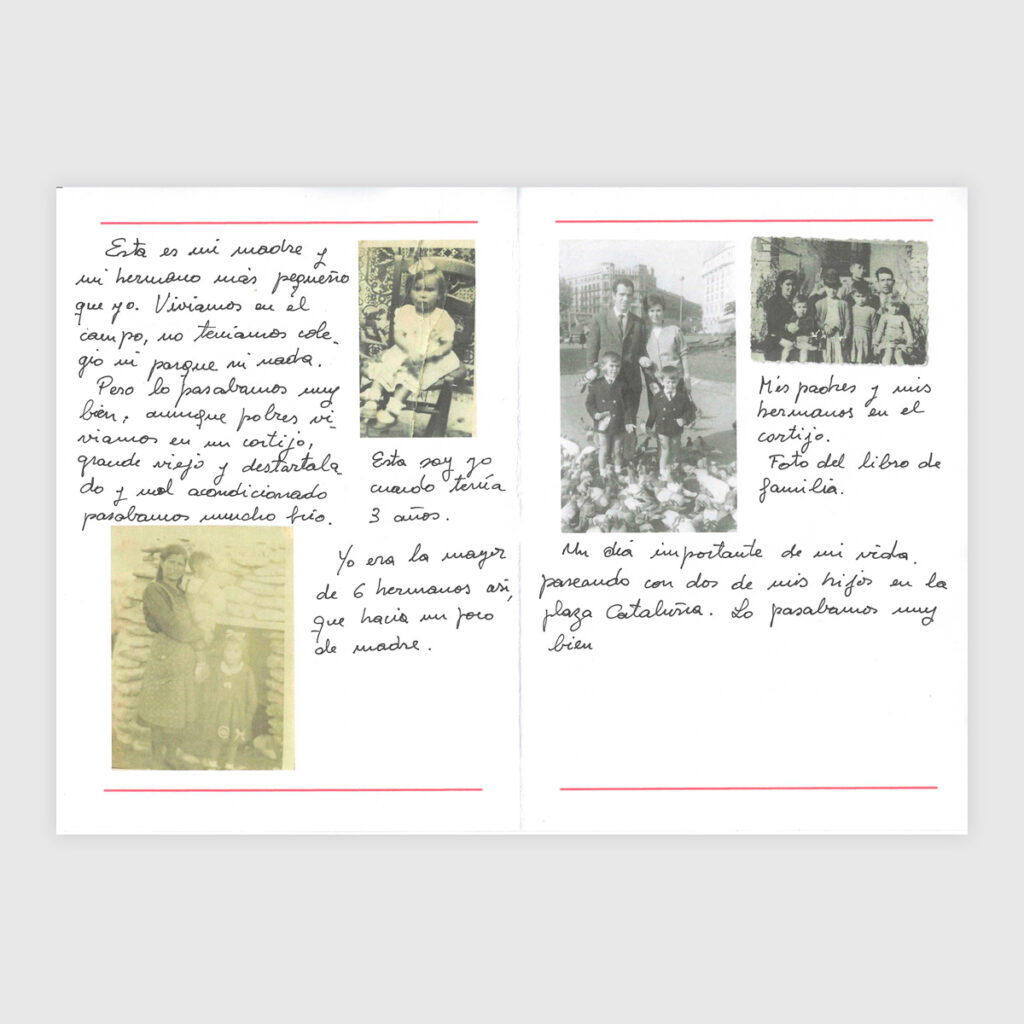 Esta es mi madre y
mi hermano más pequeño
que yo. Viviamos en el
campo, no teniamos cole-
gio ni parque ni nada.
Pero lo pasabamos muy
bien; aunque pobres vi-
viamos en un cortijo,
grande viejo y destartala
do y mal acondicionado
pasabamos muncho frio.
Esta soy yo
cuando tenía
3 años.
Yo era la mayor
de 6 hermanos asi,
que hacia un poco
de madre.
Mis padres y mis
hermanos en el
cortijo.
Foto del libro de
familia.
Un dia importante de mi vida.
paseando con dos de mis hijos en la
plaza Cataluña. Lo pasabamos muy
bien